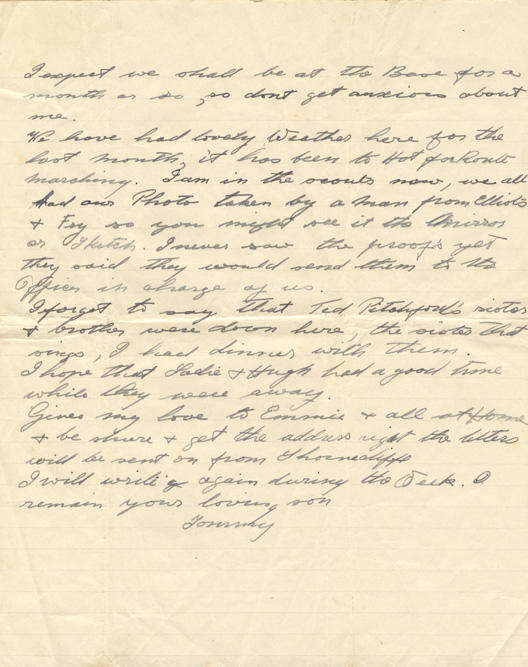 I expect we shall be at the Base for a
month or so, so dont get anxious about
me.
We have had lovely Weather here for the
last month, it has been to Hot for Route
marching. I am in the scouts now, we all
had our Photo taken by a man from Elliots
& Fry so you might see it the Mirror
or Sketch. I never saw the proofs yet
they said they would send them to the
Officer in charge of us.
I forgot to say that Ted Petchford's sister
& brother were down here, the sister that
sings, I had dinner with them.
I hope that Sadie & Hugh had a good time
while they were away.
Give my love to Emmie & all at Home
& be shure & get the address right the letters
will be sent on from Thorncliffe
I will write again during the Week. I
remain your loving son
Tommy